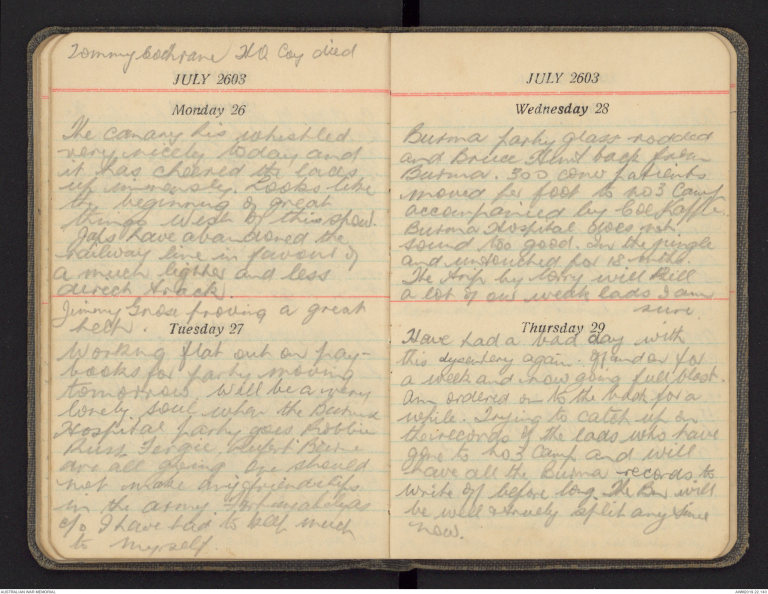 Tommy Cochrane H.Q Coy died
JULY 2603
Monday 26
The canary his whistled
very nicely today and
it has cheered the lads
up immensly. Looks like
the beginning of great
things west of this show.
Japs have abandoned the
railway line in favour of
a much lighter and less
direct track.
Jimmy Grose proving a great
help.
Tuesday 27
Working flat out on pay-
books for party moving
tomorrow. Will be a very
lonely soul when the Burma
Hospital party goes Robbie
Russ Fergie,
are all going one should
not make any friendships
in the army. Fortunately as
c/o I have had to keep much
to myself.
JULY 2603
Wednesday 28
Burma party glass rodded
and Bruce Hunt back from
Burma. 300 conv patients
moved per foot to no3 Camp
accompanied by Col Kappe.
Burma Hospital does not
sound too good. In the jungle
and untouched for 18 mths.
The trip by lorry will kill
a lot of our weak lads I am
sure
Thursday 29
Have had a bad day with
this dysentery again. Off and on for
a week and now going full blast.
Am ordered on to the bed for a
while. Trying to catch up on
the records of the lads who have
gone to no3 Camp and will
have all the Burma records to
write off before long. The Bn will
be well & truely split any time
now.
AUSTRALIAN WAR MEMORIAL